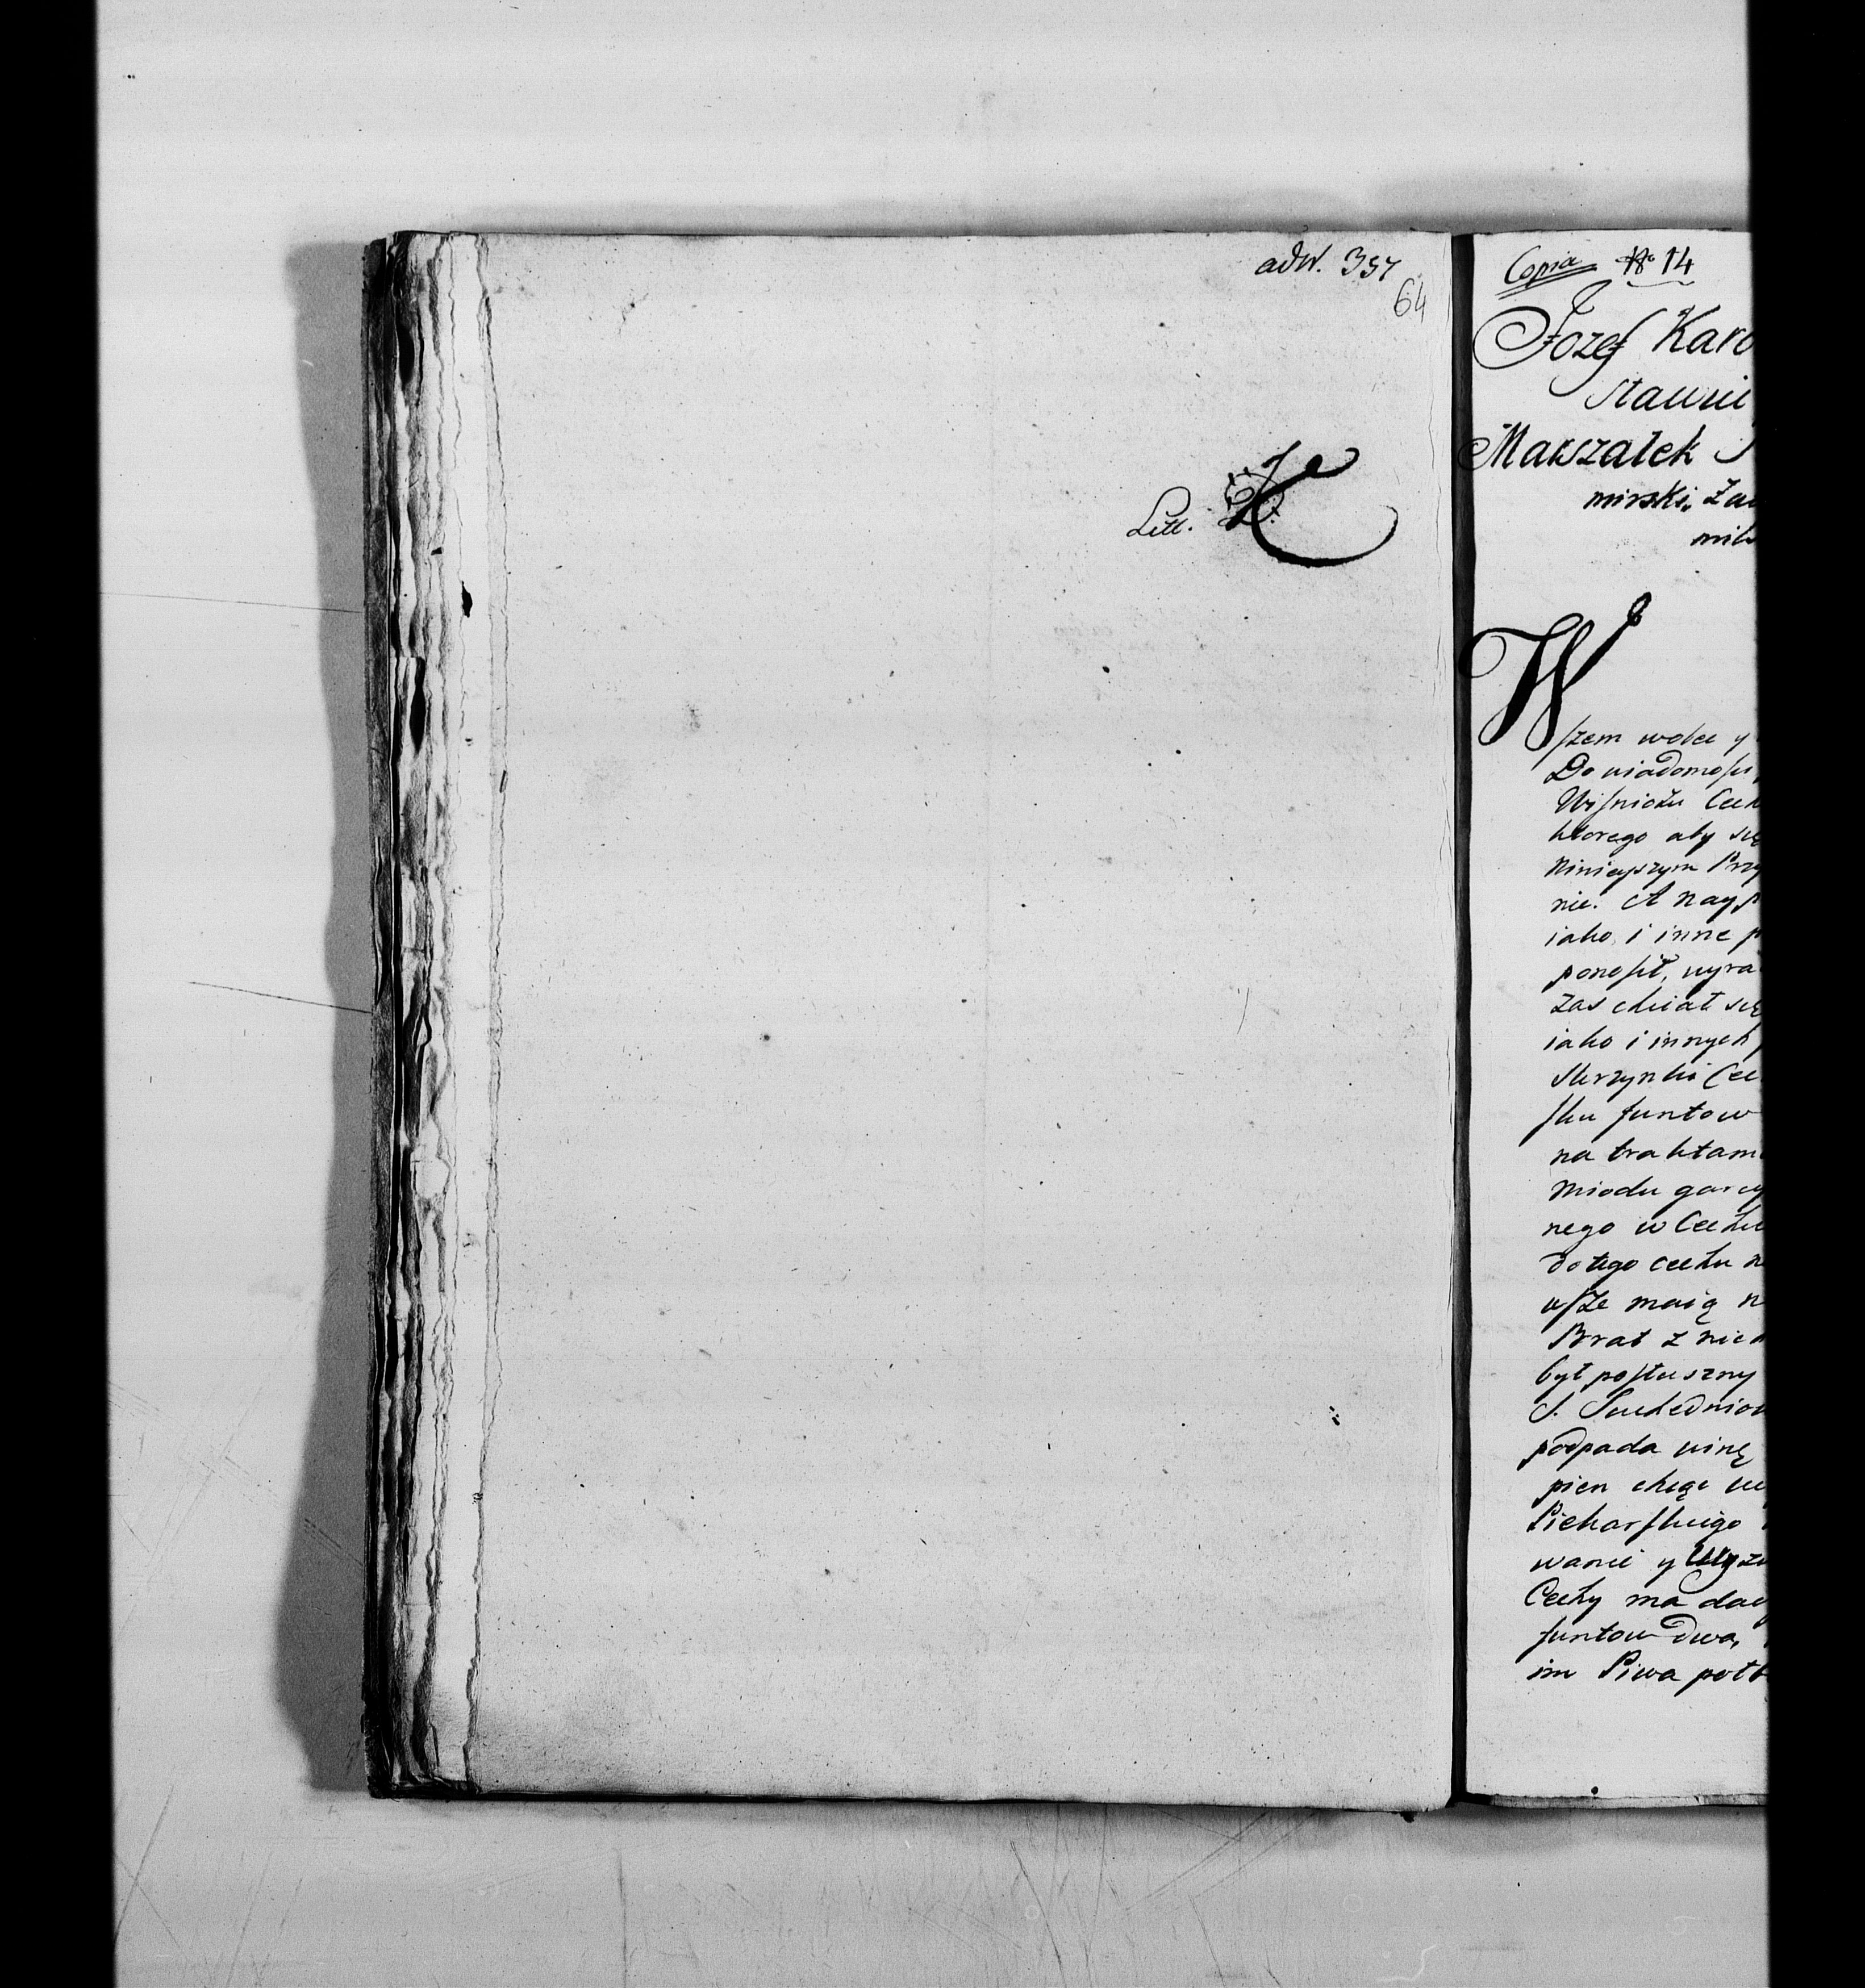 adN. 357
64
Litt. K
Copia No 14
Jozef Karo
stawni
Marszałek
mirski, Za
mil
Wszem wobec y
Do wiadomosci
Wiśniczu Cech
ktorego aby się
Ninieyszym Przy
nie. A nayp
iako, i inne p
ponosił, wyra
zas chciał się
iako i innych p
Skrzynki Cec
sku funtow
na traktam
Miodu garcy
nego w Cechu
do tego cechu n
wsze maią n
Brat z nich
był posłuszny
S. Suchedniow
podpada winę
pien chcąc
Piekarskiego
wanie y Wyz
Cechy ma dac
funtow dwa,
im Piwa poł b